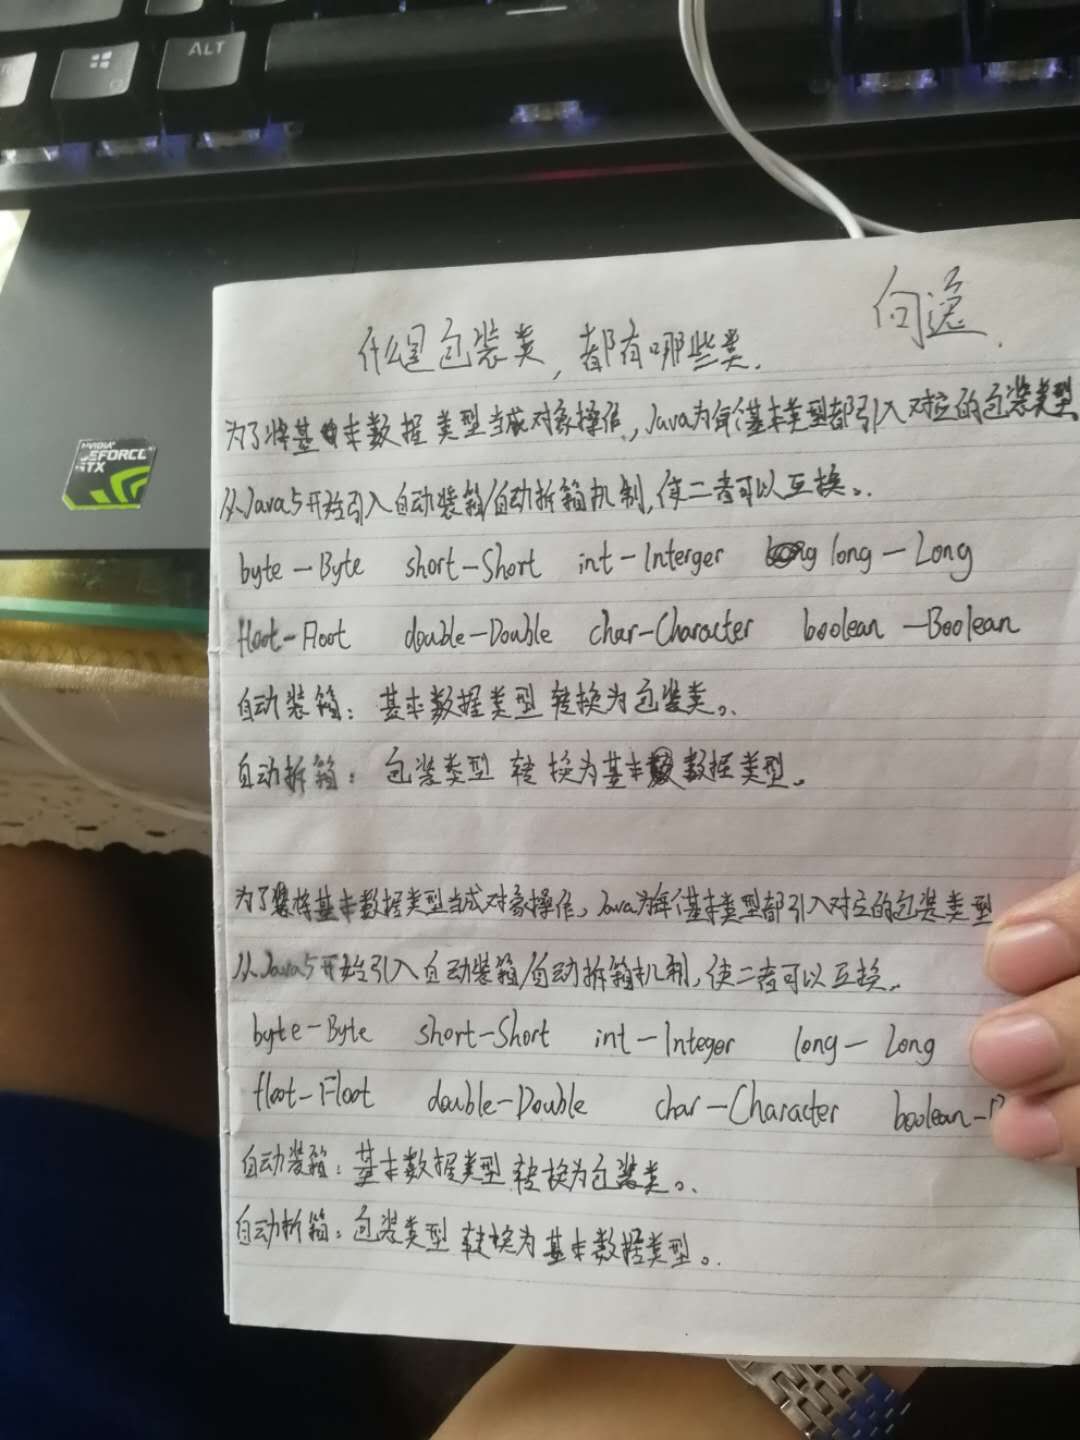 ALT
NVIDIA
GEFORCE
GTX
向逸.
什么是包装类,都有哪些类.
为了将基本数据类型当成对象操作,Java为每个基本类型都引入对应的包装类型
从Java5开始引入自动装箱/自动拆箱机制,使二者可以互换。
byte-Byte short-Short int-Interger long-Long
float-Float double-Double char-Character boolean-Boolean
自动装箱:基本数据类型转换为包装类。
自动拆箱:包装类型转换为基本数据类型。
为了将基本数据类型当成对象操作,Java为每个基本类型都引入对应的包装类型
从Java5开始引入自动装箱/自动拆箱机制,使二者可以互换。
byte-Byte short-Short int-Integer long-Long
float-Float double-Double char-Character boolean-
自动装箱:基本数据类型转换为包装类。
自动拆箱:包装类型转换为基本数据类型。